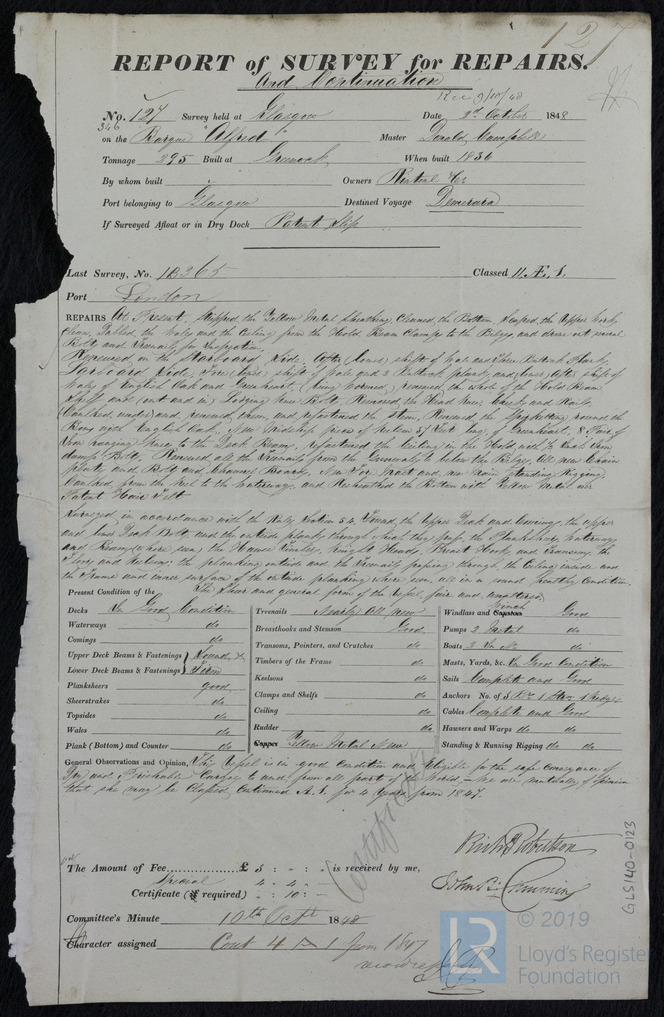 127
REPORT of SURVEY for REPAIRS.
and Continuation
Rec 9/10/48
No. 127 Survey held at Glasgow Date 3rd October 1848
346
on the Barque "Alfred" Master Donald Campbell
Tonnage 295 Built at Greenock When built 1836
By whom built Owners & Co
Port belonging to Glasgow Destined Voyage Demerara
If Surveyed Afloat or in Dry Dock Patent Slip
Last Survey, No. 18365 Classed Æ 1.
Port London
REPAIRS At Present, Stripped the Yellow Metal Sheathing, Cleaned the Bottom, the Upper Works
Clean, the Wales and the Ceiling from the Hold Beam Clamps to the Bilges, and drove out several
Bolts and Treenails for Inspection.
Renewed, in the Starboard Side, shift of Wale and Three Plank,
Larboard Side, shift of Wale and 2 plank, and after shift of
Wales of English Oak and Greenheart, renewed the whole of the Hold Beam
Shelf and (out and in) Lodging Knee Bolts, Removed the Head Knee, Cheeks and Rails,
Caulked under and renewed them, and refastened the Stem, Renewed the Spirketting round the
Bows with English Oak. pieces of Kelson 37 feet long, of Greenheart, 8 Pair of
Iron hanging Knees to the Deck Beams, refastened the Ceiling in the Hold, with Inch Iron
clamp Bolts, Renewed all the Treenails from the to below the Bilges, All new Chain
plates and Bolts and Channel Boards, New Fore Mast and new Main Standing Rigging,
Caulked from the Keel to the Waterways, and Resheathed the Bottom with Yellow Metal over
Patent Hair Felt
Surveyed in accordance with the Rules Section 54. Found the Upper Deck and Comings, the upper
and lower Deck Bolts and the outside planks through which they pass, the Planksheers, Waterways
and Beams (where seen) the Hawse Timbers, Knight Heads, Breast Hooks, and Transoms, the
Floors and Kelsons; the planking outside and the Treenails passing through, the Ceiling inside and
the Frame and inner surface of the outside planking where seen, all in a sound healthy condition
Present Condition of the The Sheer and general form of the Vessel fair and unaltered.
Decks In Good Condition
Waterways do
Comings do
Upper Deck Beams & Fastenings } Sound &
Lower Deck Beams & Fastenings } Firm
Planksheers good
Sheerstrakes do
Topsides do
Wales do
Plank (Bottom) and Counter do
Treenails Nearly All new
Breasthooks and Stemson Good
Transoms, Pointers, and Crutches do
Timbers of the Frame do
Keelsons do
Clamps and Shelfs do
Ceiling do
Rudder do
Copper Yellow Metal New
Windlass and Capstan Winch Good
Pumps 2 Metal do
Boats do
Masts, Yards, &c. In Good Condition
Sails Complete and Good
Anchors No. of 3 Br. 1 Str. 1 Kedge
Cables Complete and Good
Hawsers and Warps do do
Standing & Running Rigging do do
General Observations and Opinion, This Vessel is in good Condition and Eligible for the safe conveyance of
Dry and Perishable Cargoes to and from all parts of the World, - We are mutually of opinion
that she may be Classed, Continued A.1. for 4 Years from 1847.
Certificate
The Amount of Fee £ 5 : - : - is received by me,
Special 4 : 4 : -
Certificate (if required) - : 10 : -
Richd Robertson
John Cumming
Committee's Minute 10th Octr 1848
Character assigned Cont 4 A 1 from 1847
GLS140-0123
© 2019
LR
Lloyd's Register
Foundation